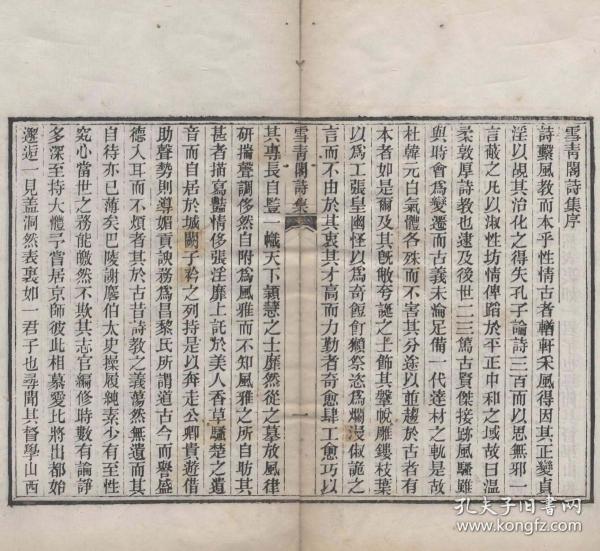 雪青閣詩集序
詩繫風教而本乎性情古者輶軒采風得因其正變貞
淫以覘其治化之得失孔子論詩三百而以思無邪一
言蔽之凡以淑性坊情俾蹈於平正中和之域故曰溫
柔敦厚詩教也逮及後世二三篤古賢傑接跡風騷雖
與時會爲變遷而古義未淪足備一代達材之軌是故
杜韓元白氣體各殊而不害其分途以並趨於古者有
本者如是爾及其旣敝夸誕之士飾其鞶帨雕鏤枝葉
以爲工張皇幽怪以爲奇餖飣獺祭恣爲爛漫俶詭之
言而不由於其衷其才高而力勤者奇愈肆工愈巧以
雪青閣詩集
一
其專長自豎一幟天下穎慧之士靡然從之摹放風律
研揣聲調侈然自附爲風雅而不知風雅之所自助其
甚者描寫豔情侈張淫靡上託於美人香草騷楚之遺
音而自居於城闕子衿之列持是以奔走公卿貴遊借
助聲勢則導媚貢諛務爲昌黎氏所謂道古今而譽盛
德入耳而不煩者其於古昔詩教之義蕩然無遺而其
自待亦已薄矣巴陵謝麐伯太史操履純素少有至性
究心當世之務能皦然不欺其志官編修時數有論諍
多深至持大體予嘗居京師彼此相慕愛比將出都始
邂逅一見蓋洞然表裏如一君子也尋聞其督學山西
孔夫子旧书网
www.kongfz.com